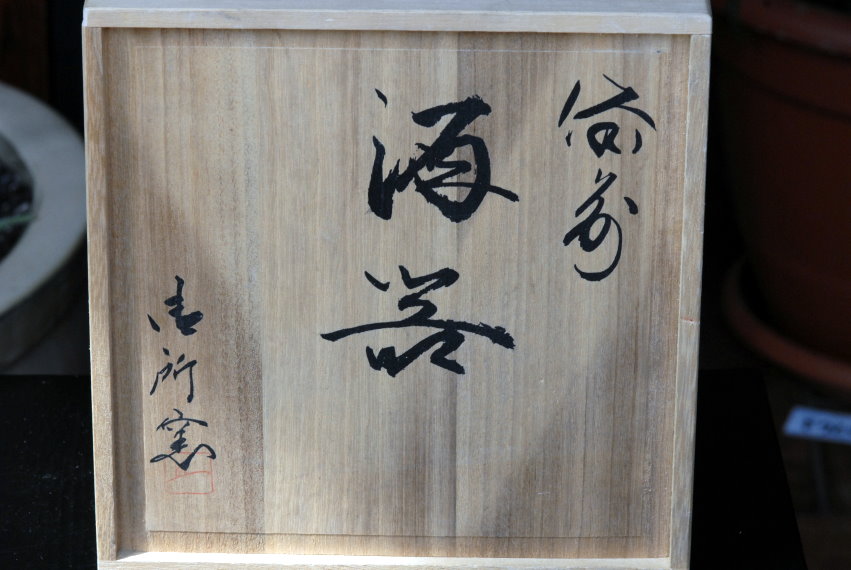 備前
酒器
御所窯